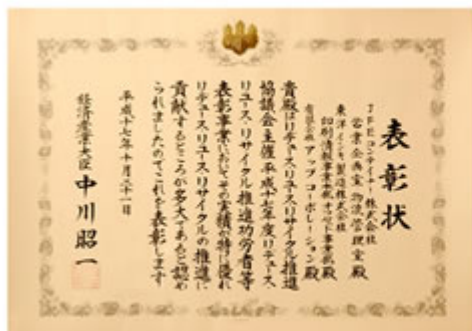 表彰状
JFEコンテイナー株式会社
営業企画室 物流管理室 殿
東洋インキ製造株式会社
印刷情報事業本部 オフセット事業部 殿
有限会社 アップコーポレーション 殿
貴殿はリデュース・リユース・リサイクル推進
協議会主催平成十七年度リデュース・
リユース・リサイクル推進功労者等
表彰事業においてその実績が特に優れ
リデュース・リユース・リサイクルの推進に
貢献するところが多大であると認め
られましたのでこれを表彰します
平成十七年十月二十一日
経済産業大臣 中川昭一